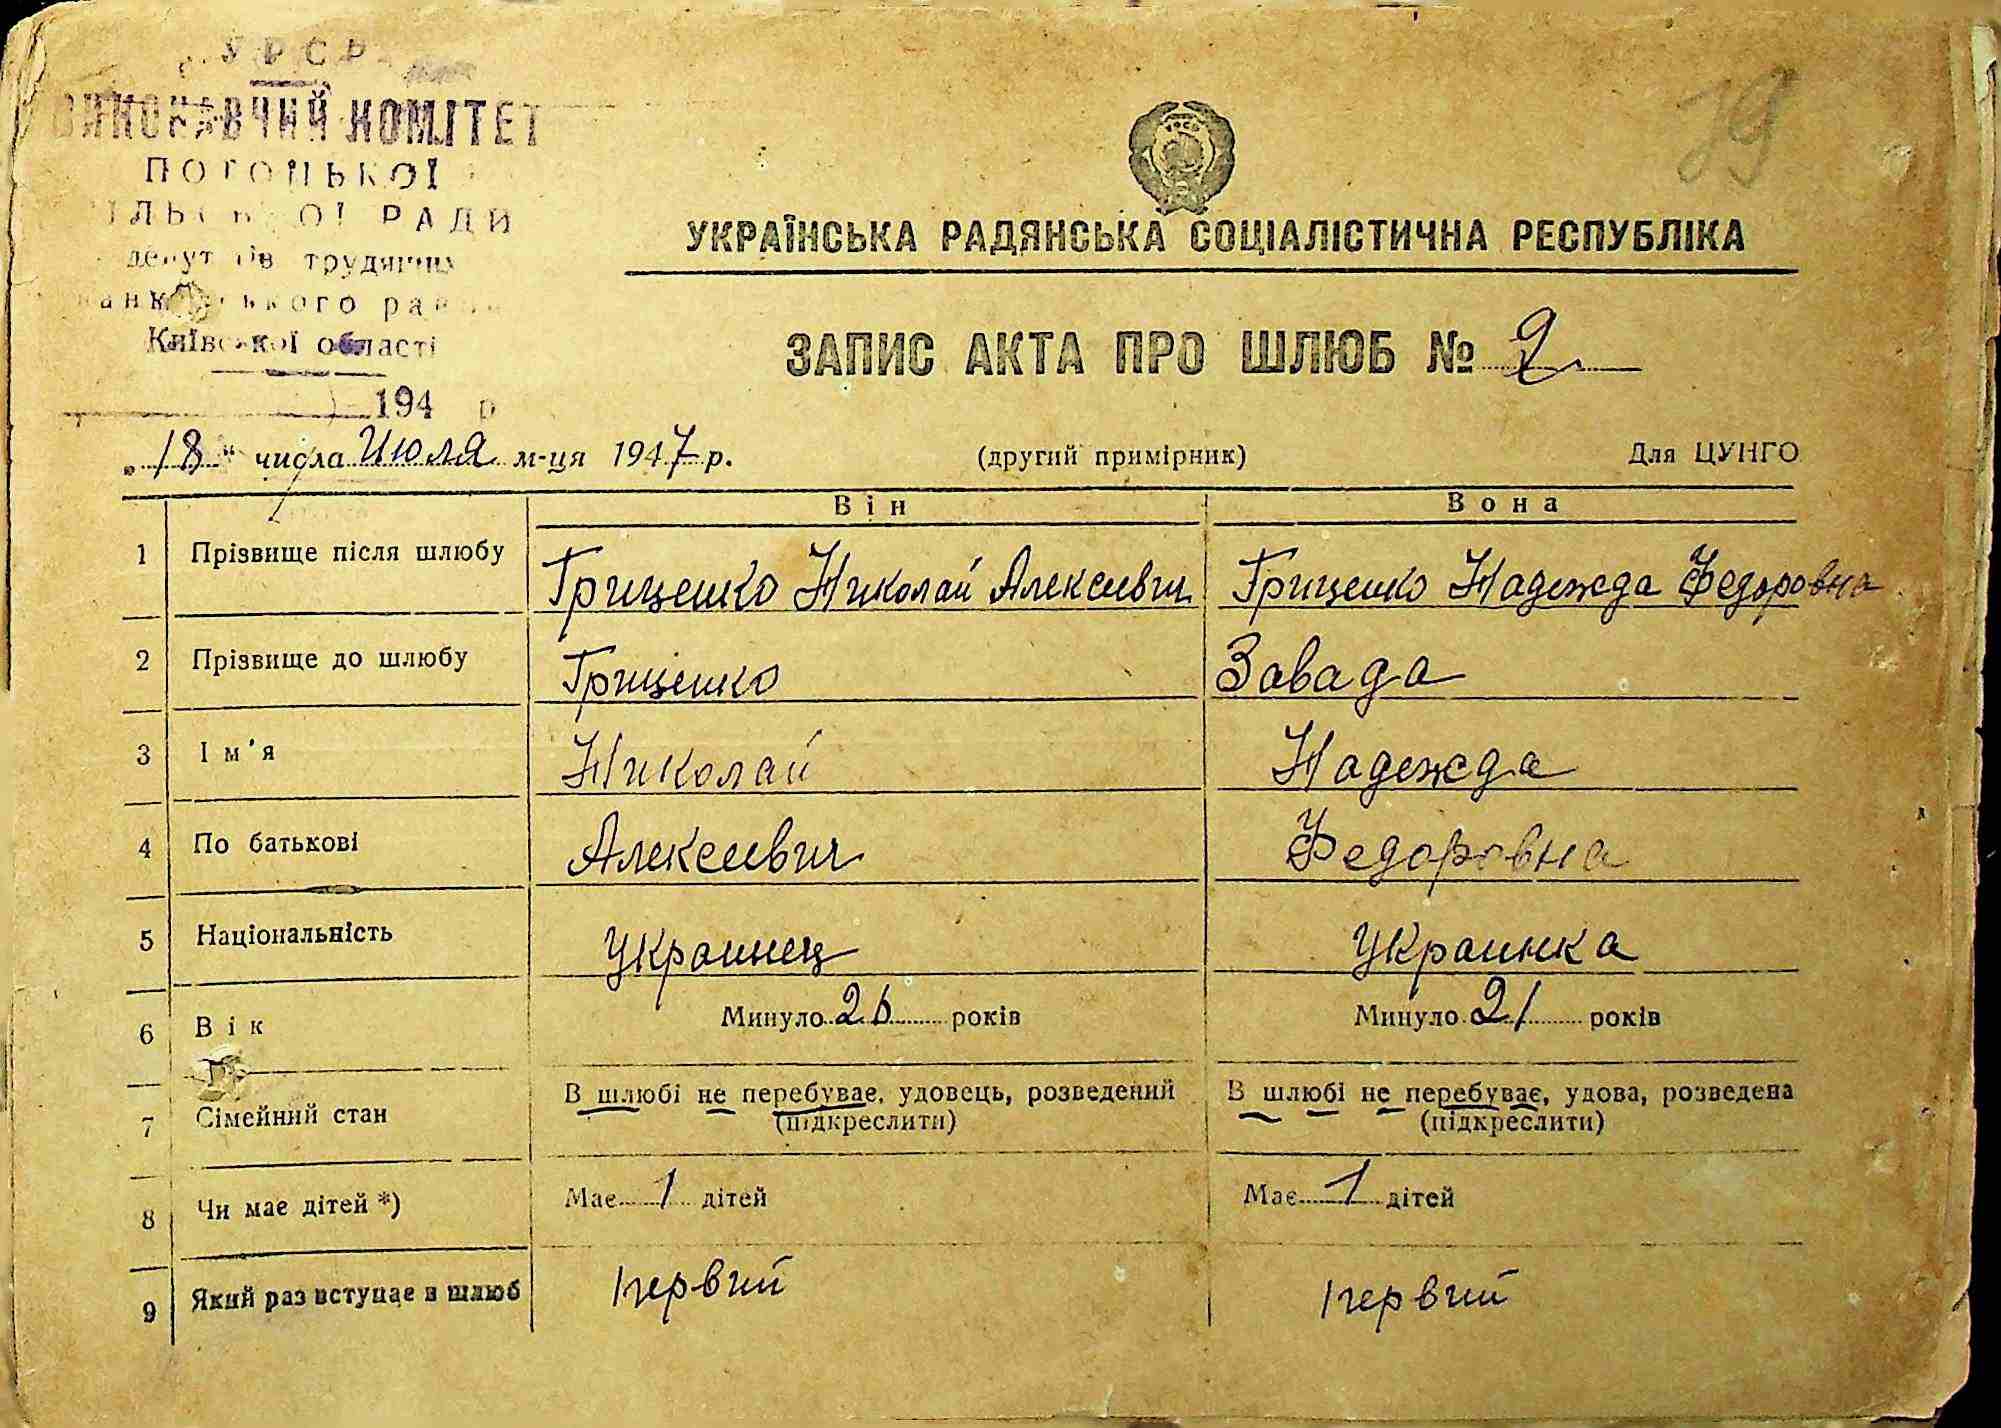 УРСР
ВИКОНАВЧИЙ КОМІТЕТ
РАДИ
Київської області
194 р
39
УРСР
УКРАЇНСЬКА РАДЯНСЬКА СОЦІАЛІСТИЧНА РЕСПУБЛІКА
ЗАПИС АКТА ПРО ШЛЮБ № 2
„18“ числа Июля м-ця 1947 р. (другий примірник) Для ЦУНГО
Він Вона
1 Прізвище після шлюбу Гриценко Николай Алексеевич Гриценко Надежда Федоровна
2 Прізвище до шлюбу Гриценко Завада
3 Ім'я Николай Надежда
4 По батькові Алексеевич Федоровна
5 Національність Украинец Украинка
6 Вік Минуло 26 років Минуло 21 років
7 Сімейний стан В шлюбі не перебуває, удовець, розведений В шлюбі не перебуває, удова, розведена
(підкреслити) (підкреслити)
8 Чи має дітей *) Має 1 дітей Має 1 дітей
9 Який раз вступає в шлюб первий первий